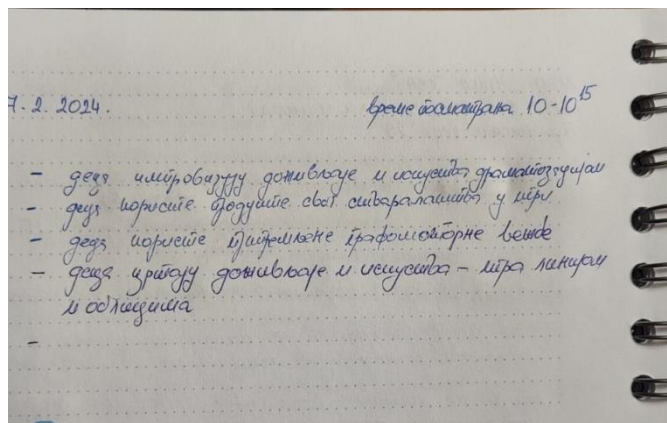 7.2.2024. време посматрања 10-10¹⁵
- деца импровизују доживљаје и искуства драматизацијом
- деца користе продукте свог стваралаштва у игри
- деца користе припремљене графомоторне вежбе
- деца цртају доживљаје и искуства - игра линијом
и облицима
-